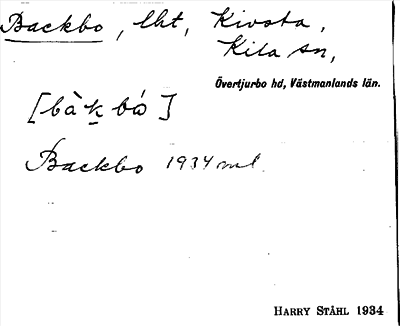 Backbo, lht, Kivsta,
Kila sn,
Övertjurbo hd, Västmanlands län.
[bàk̠ bó]
Backbo 1934 ml
HARRY STÅHL 1934